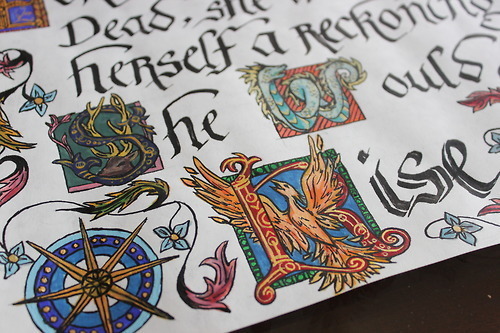 Dead, she
herself a reckoning
She Would
Rise